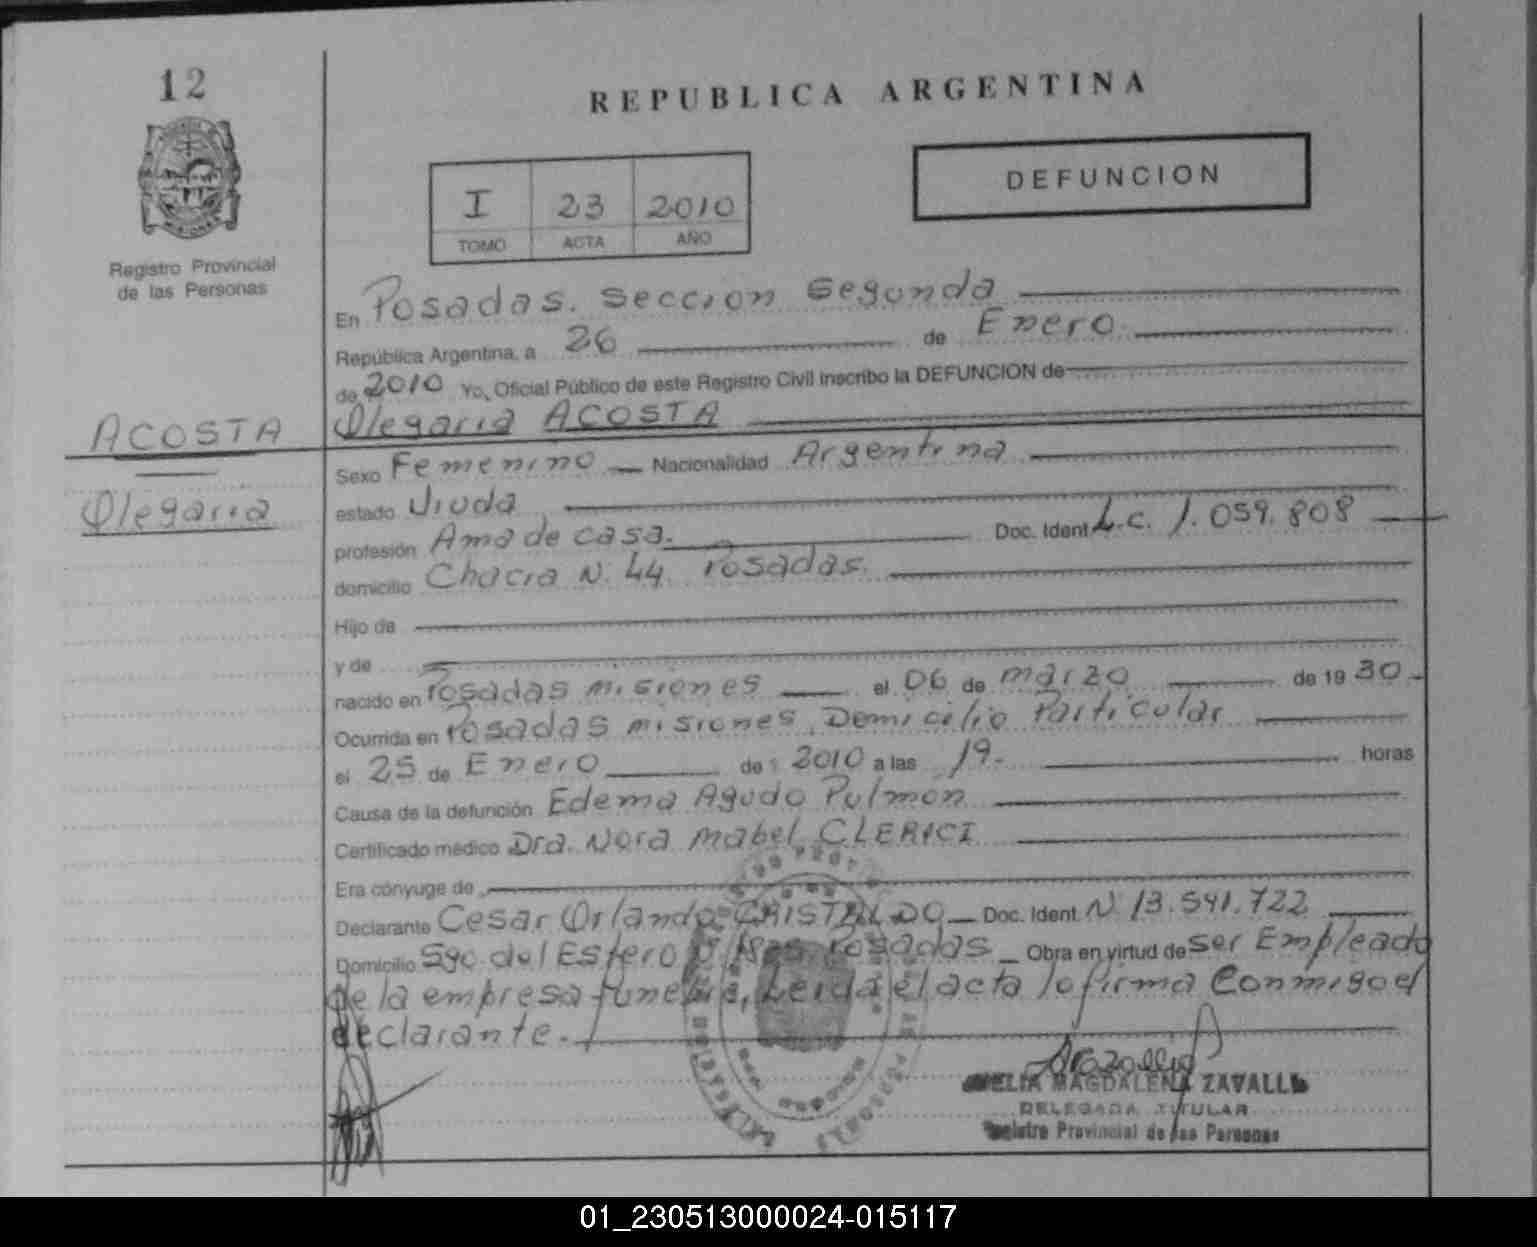 12
REPUBLICA ARGENTINA
I 23 2010
TOMO ACTA AÑO
DEFUNCION
Registro Provincial
de las Personas
En Posadas. Seccion Segunda
República Argentina, a 26 de Enero.
de 2010 Yo, Oficial Público de este Registro Civil inscribo la DEFUNCION de
ACOSTA
Olegaria
Olegaria ACOSTA
Sexo Femenino Nacionalidad Argentina
estado Viuda
profesión Ama de casa. Doc. Ident L.C. 1.059.808
domicilio Chacra N. 44 Posadas.
Hijo de
y de
nacido en Posadas misiones el 06 de marzo de 19 30
Ocurrida en Posadas misiones, Domicilio Particular
el 25 de Enero de 2010 a las 19. horas
Causa de la defunción Edema Agudo Pulmon
Certificado médico Dra. Nora Mabel CLERICI
Era cónyuge de
Declarante Cesar Orlando CRISTALDO Doc. Ident. N 13.541.722
Domicilio Sgo. del Estero Posadas Obra en virtud de ser Empleado
de la empresa funebre, Leida el acta la firma Conmigo el
declarante.
MAGDALENA ZAVALLA
DELEGADA TITULAR
Registro Provincial de las Personas
01_230513000024-015117